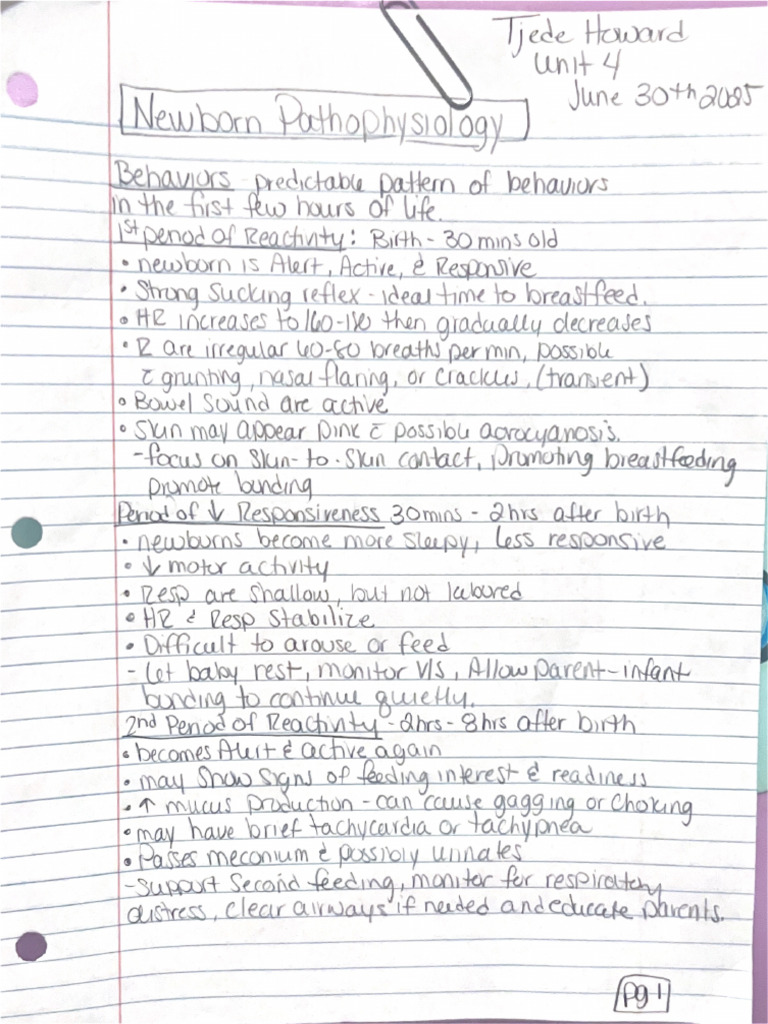 Tjede Howard
Unit 4
June 30th 2025
Newborn Pathophysiology
Behaviors - predictable pattern of behaviors
in the first few hours of life.
1st period of Reactivity: Birth - 30 mins old
• newborn is Alert, Active, & Responsive
• Strong sucking reflex - ideal time to breastfeed.
• HR increases to 160-180 then gradually decreases
• R are irregular 60-80 breaths per min, possible
c̄ grunting, nasal flaring, or crackles, (transient)
• Bowel Sound are active
• Skin may appear pink c̄ possible acrocyanosis.
- focus on skin-to-skin contact, promoting breastfeeding
promote bonding
Period of ↓ Responsiveness 30mins - 2hrs after birth
• newborns become more sleepy, less responsive
• ↓ motor activity
• Resp are shallow, but not laboured
• HR & Resp Stabilize
• Difficult to arouse or feed
- Let baby rest, monitor V/S, Allow parent-infant
bonding to continue quietly.
2nd Period of Reactivity - 2hrs - 8hrs after birth
• becomes Alert & active again
• may show signs of feeding interest & readiness
• ↑ mucus production - can cause gagging or choking
• may have brief tachycardia or tachypnea
• Passes meconium & possibly urinates
- support second feeding, monitor for respiratory
distress, clear airways if needed and educate parents.
pg 1